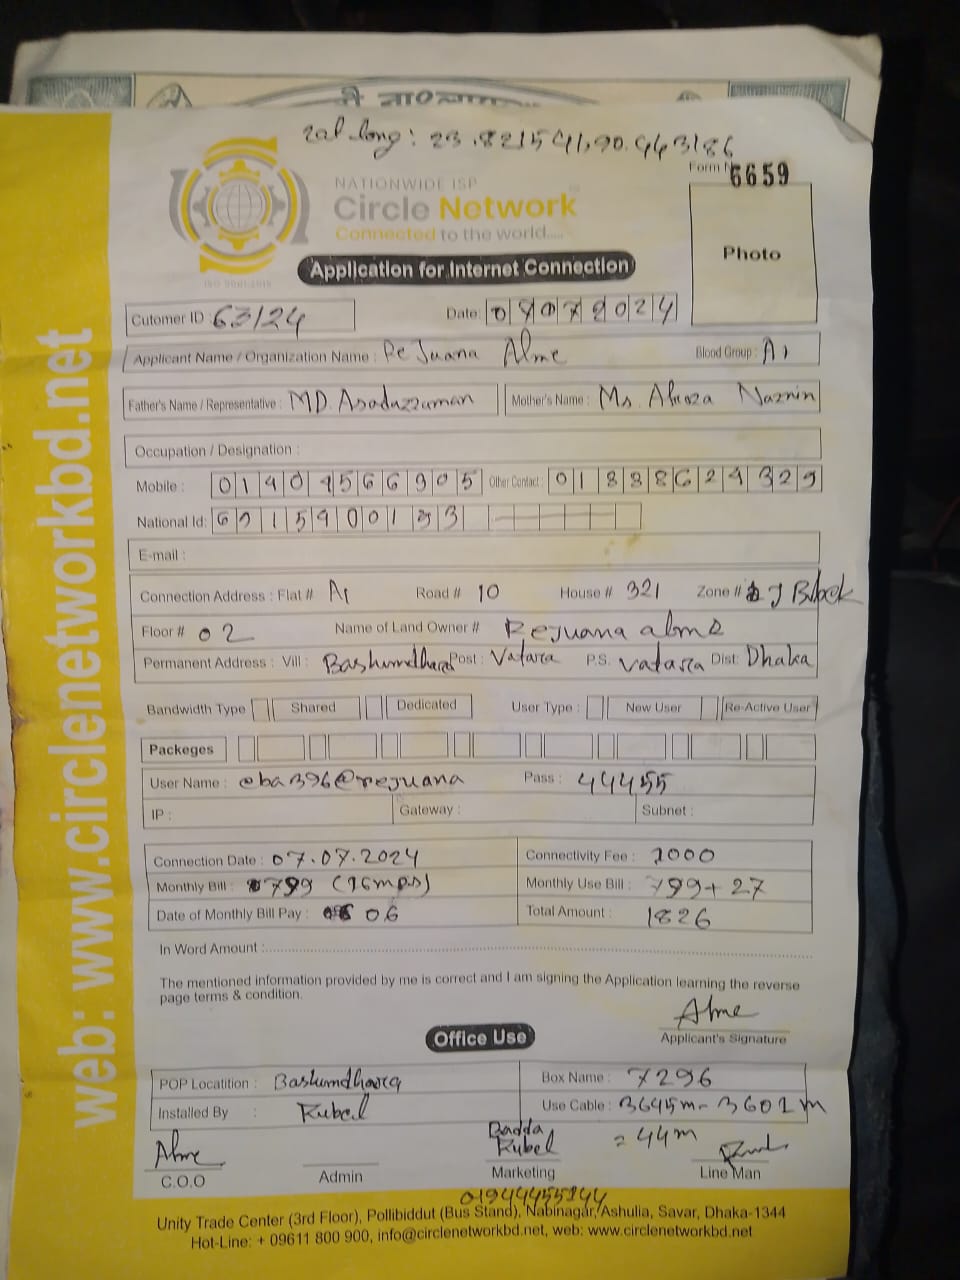 Lat Long: 23.821541,90.443186
Form N 6659
NATIONWIDE ISP
Circle Network
Connected to the world.....
ISO 9001:2015
Photo
Application for Internet Connection
Cutomer ID 63124 Date: 09072024
Applicant Name / Organization Name : ReJuana Alme Blood Group : A+
Father's Name / Representative : MD. Asaduzzaman Mother's Name : Ms. Afroza Naznin
Occupation / Designation :
Mobile : 01404566905 Other Contact : 01888624329
National Id:
E-mail :
Connection Address : Flat # A1 Road # 10 House # 321 Zone # J Block
Floor # 02 Name of Land Owner # Rejuana alme
Permanent Address : Vill : Bashundhara Post : Vatara P.S. Vatara Dist: Dhaka
Bandwidth Type Shared Dedicated User Type : New User Re-Active User
Packeges
User Name : cba396@rejuana Pass : 44455
IP : Gateway : Subnet :
Connection Date : 07.07.2024 Connectivity Fee : 1000
Monthly Bill : 799 (16mps) Monthly Use Bill : 799+27
Date of Monthly Bill Pay : 06 Total Amount : 1826
In Word Amount :
The mentioned information provided by me is correct and I am signing the Application learning the reverse
page terms & condition.
Alme
Applicant's Signature
Office Use
POP Locatition : Bashundhara Box Name : 7296
Installed By : Rubel Use Cable : 3645m-3601m
= 44m
Alme Badda Rubel
C.O.O Admin Marketing Line Man
01944455144
Unity Trade Center (3rd Floor), Pollibiddut (Bus Stand), Nabinagar, Ashulia, Savar, Dhaka-1344
Hot-Line: + 09611 800 900, info@circlenetworkbd.net, web: www.circlenetworkbd.net
web: www.circlenetworkbd.net